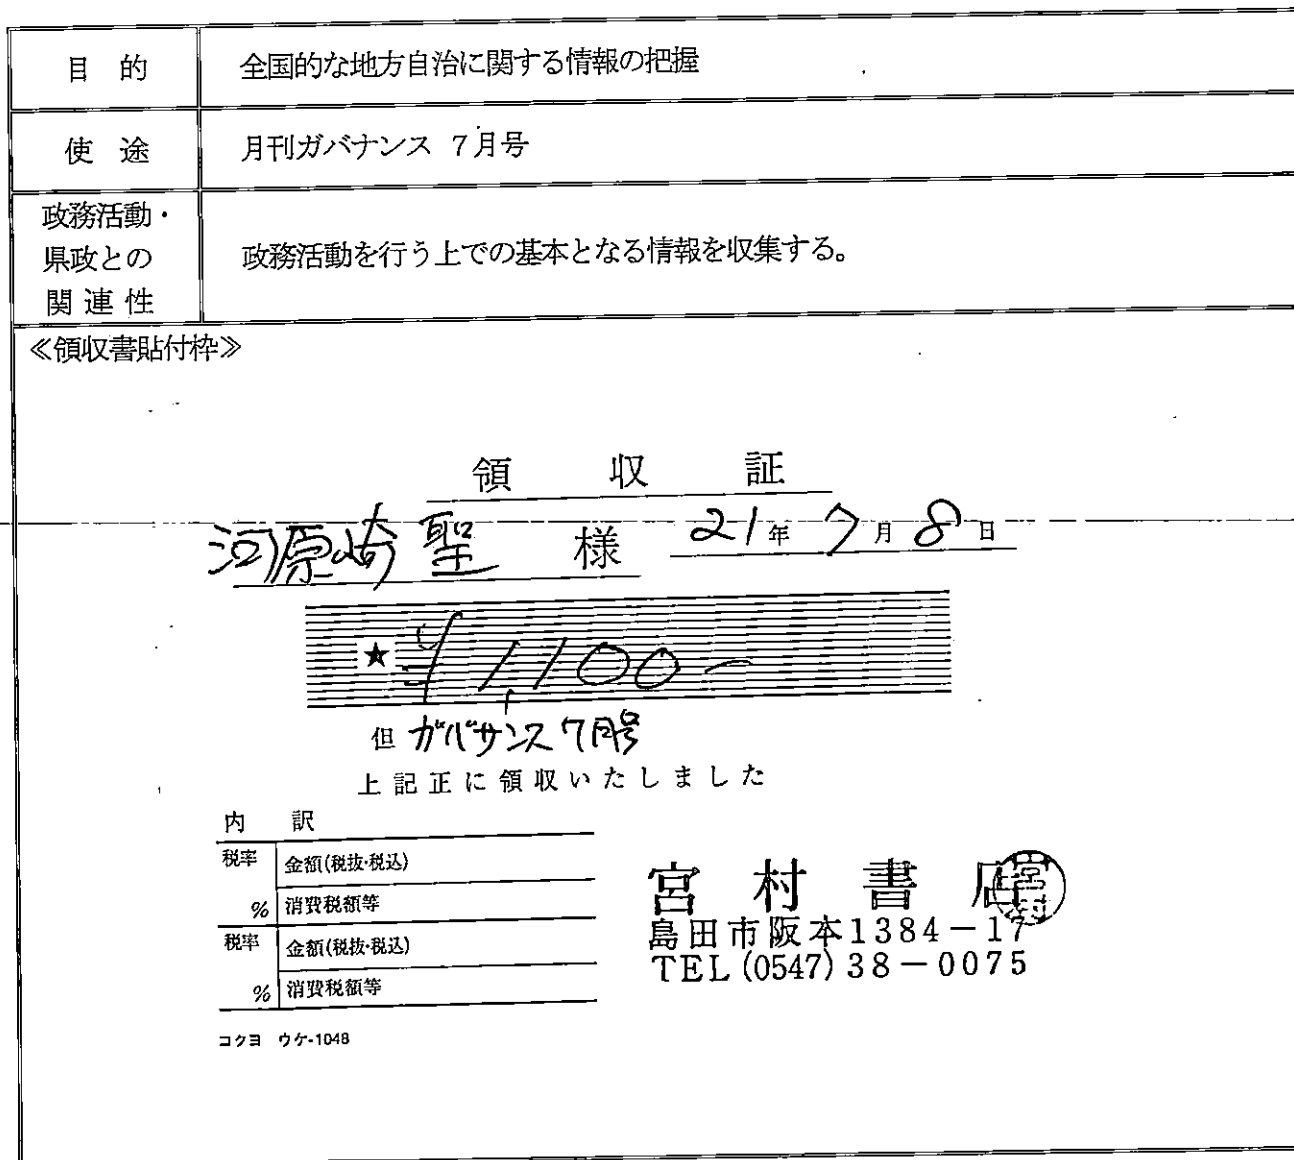 目 的 全国的な地方自治に関する情報の把握
使 途 月刊ガバナンス 7月号
政務活動・
県政との
関 連 性
政務活動を行う上での基本となる情報を収集する。
≪領収書貼付枠≫
領 収 証
河原崎 聖 様 21年 7月 8日
★ ¥1,100-
但 ガバナンス 7月号
上記正に領収いたしました
内 訳
税率 金額(税抜・税込)
% 消費税額等
税率 金額(税抜・税込)
% 消費税額等
宮 村 書 店
宮村
島田市阪本1384-17
TEL(0547)38-0075
コクヨ ウケ-1048